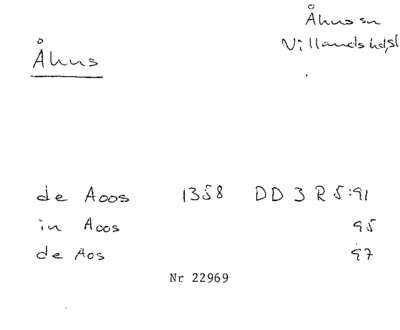 Åhus sn
Villands hd, Sk
Åhus
de Aoos 1358 DD 3 R 5:91
in Aoos 95
de Aos 97
Nr 22969